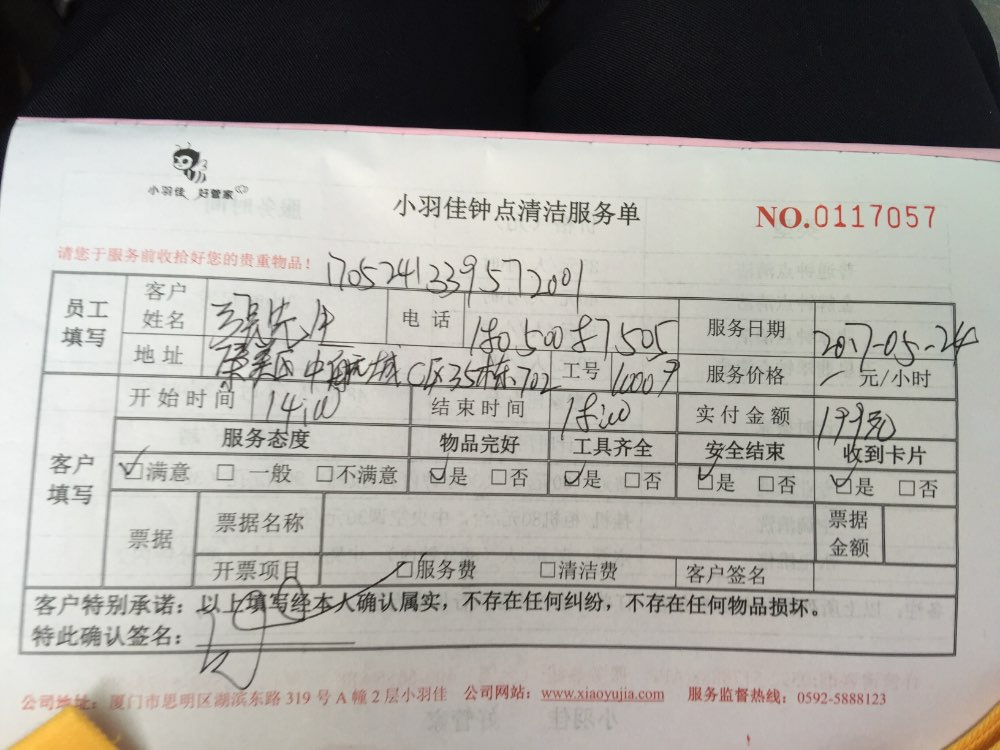 小羽佳 好管家
小羽佳钟点清洁服务单 NO.0117057
请您于服务前收拾好您的贵重物品! 1705241339572001
员工填写 客户姓名 吴先生 电话 18050087505 服务日期 2017-05-24
地址 集美区中航城C区35栋702 工号 10007 服务价格 元/小时
客户填写 开始时间 14:00 结束时间 18:00 实付金额 199元
服务态度 物品完好 工具齐全 安全结束 收到卡片
☑满意 □一般 □不满意 ☑是 □否 ☑是 □否 ☑是 □否 ☑是 □否
票据 票据名称 票据金额
开票项目 □服务费 □清洁费 客户签名
客户特别承诺:以上填写经本人确认属实,不存在任何纠纷,不存在任何物品损坏。
特此确认签名:
公司地址:厦门市思明区湖滨东路 319 号 A 幢 2 层小羽佳 公司网站:www.xiaoyujia.com 服务监督热线:0592-5888123